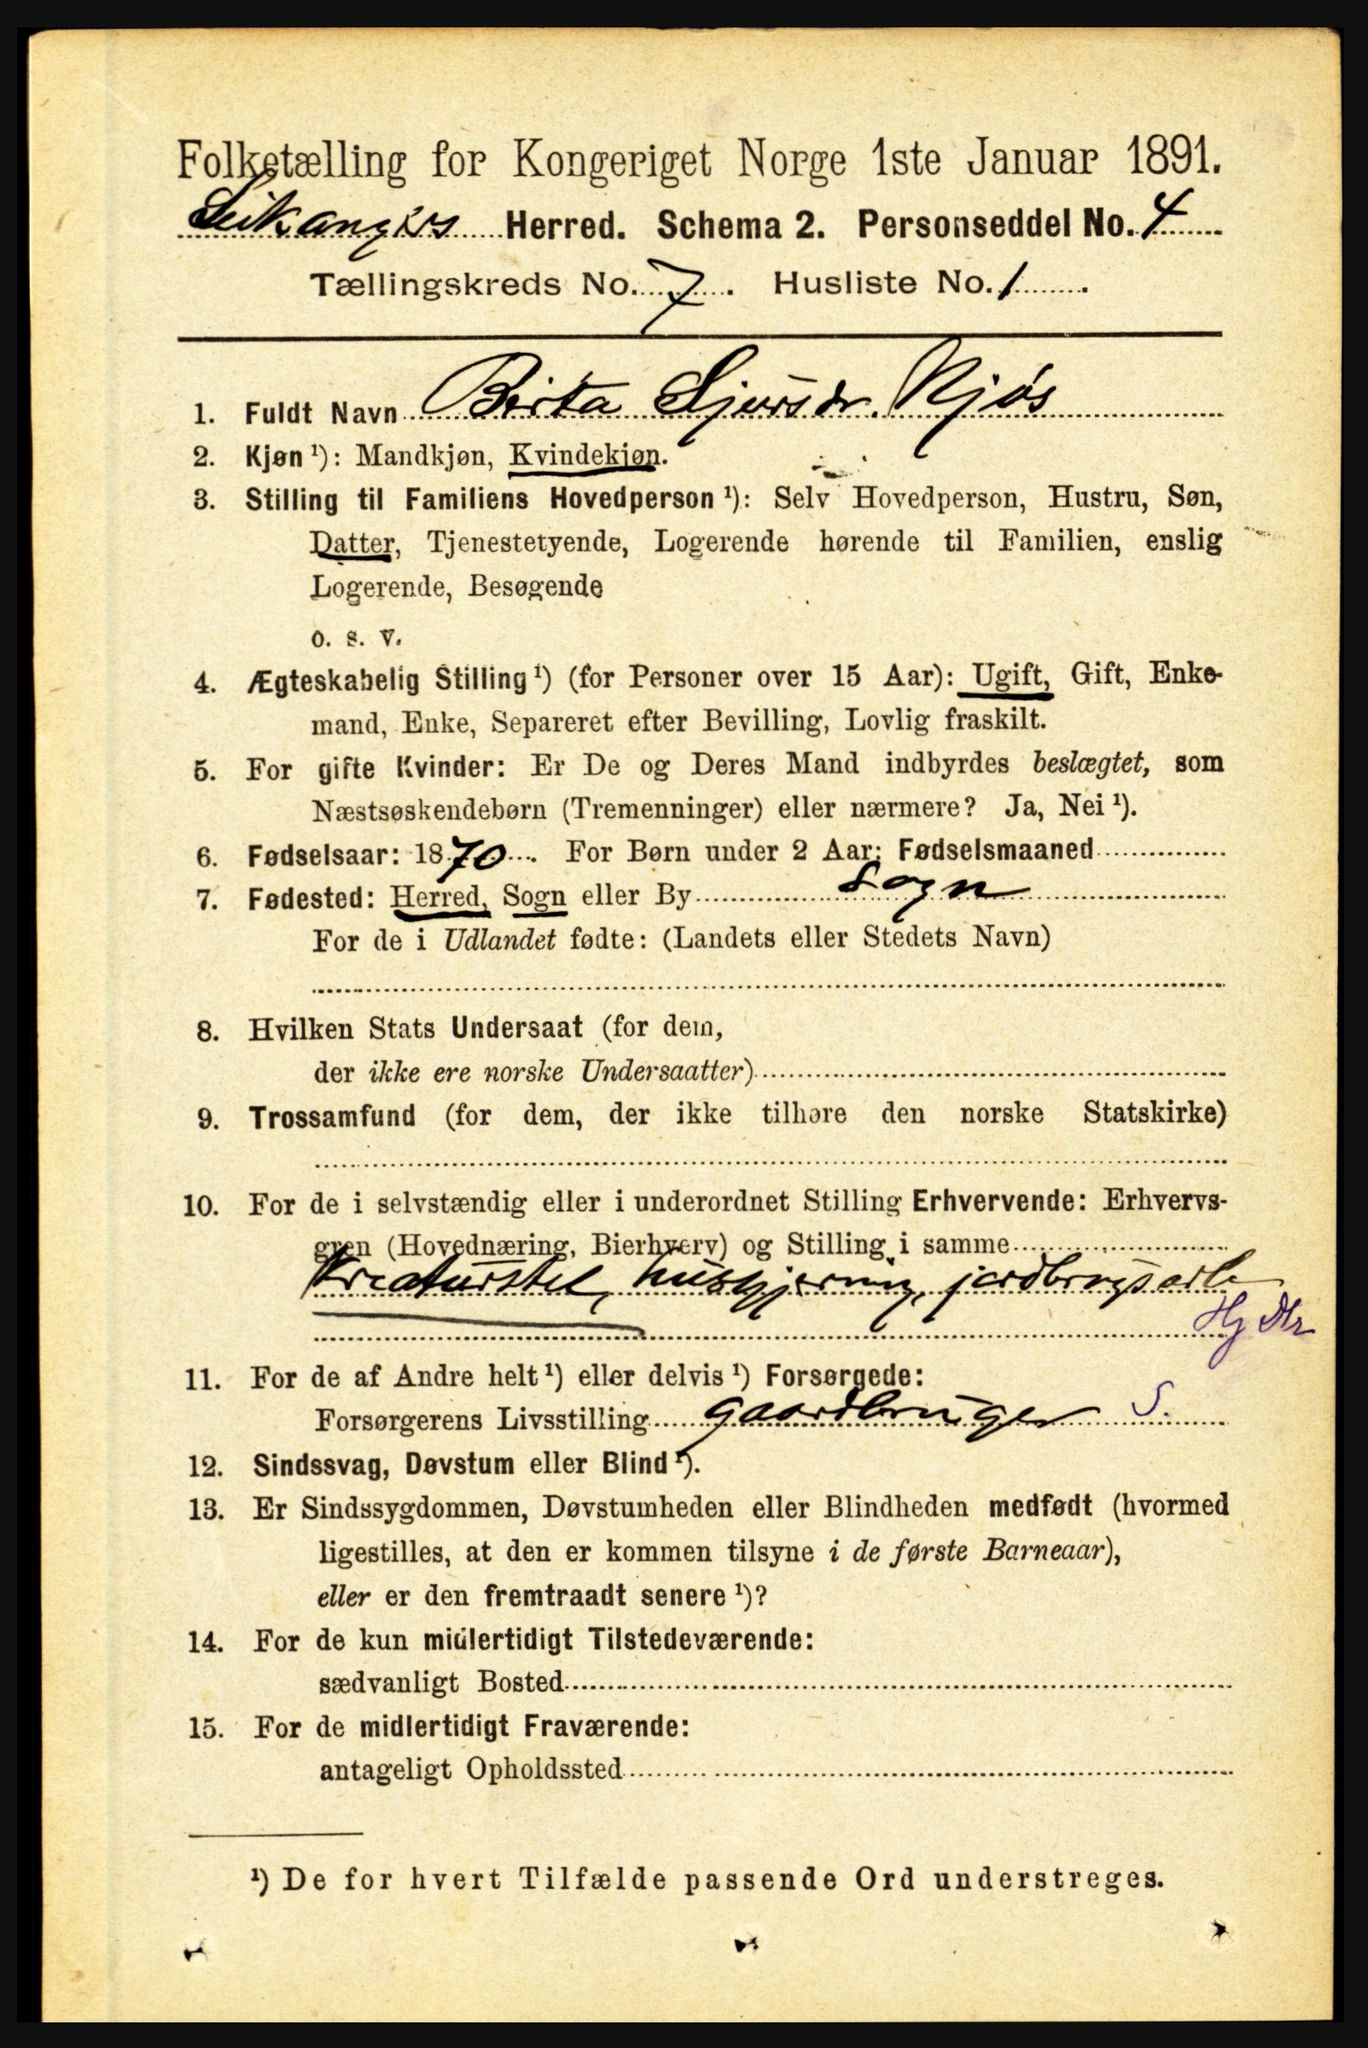 Folketælling for Kongeriget Norge 1ste Januar 1891.
Leikangers Herred. Schema 2. Personseddel No. 4
Tællingskreds No. 7. Husliste No. 1.
1. Fuldt Navn Berta Sjursdr. Njøs
2. Kjøn ¹): Mandkjøn, Kvindekjøn.
3. Stilling til Familiens Hovedperson ¹): Selv Hovedperson, Hustru, Søn,
Datter, Tjenestetyende, Logerende hørende til Familien, enslig
Logerende, Besøgende
o. s. v.
4. Ægteskabelig Stilling ¹) (for Personer over 15 Aar): Ugift, Gift, Enke-
mand, Enke, Separeret efter Bevilling, Lovlig fraskilt.
5. For gifte Kvinder: Er De og Deres Mand indbyrdes beslægtet, som
Næstsøskendebørn (Tremenninger) eller nærmere? Ja, Nei ¹).
6. Fødselsaar: 1870. For Børn under 2 Aar: Fødselsmaaned
7. Fødested: Herred, Sogn eller By Sogn
For de i Udlandet fødte: (Landets eller Stedets Navn)
8. Hvilken Stats Undersaat (for dem,
der ikke ere norske Undersaatter)
9. Trossamfund (for dem, der ikke tilhøre den norske Statskirke)
10. For de i selvstændig eller i underordnet Stilling Erhvervende: Erhvervs-
gren (Hovednæring, Bierhverv) og Stilling i samme
Kreaturstel, husgjerning, jordbrugsarb
Hj Dtr
11. For de af Andre helt ¹) eller delvis ¹) Forsørgede:
Forsørgerens Livsstilling gaardbruger S.
12. Sindssvag, Døvstum eller Blind ¹).
13. Er Sindssygdommen, Døvstumheden eller Blindheden medfødt (hvormed
ligestilles, at den er kommen tilsyne i de første Barneaar),
eller er den fremtraadt senere ¹)?
14. For de kun midlertidigt Tilstedeværende:
sædvanligt Bosted
15. For de midlertidigt Fraværende:
antageligt Opholdssted
¹) De for hvert Tilfælde passende Ord understreges.